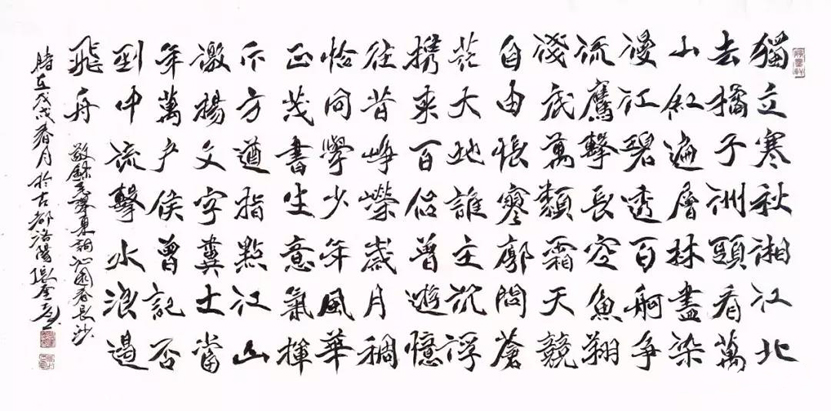 獨立寒秋湘江北
去橘子洲頭看萬
山紅遍層林盡染
漫江碧透百舸爭
流鷹擊長空魚翔
淺底萬類霜天競
自由悵寥廓問蒼
茫大地誰主沉浮
携來百侶曾遊憶
往昔崢嶸歲月稠
恰同學少年風華
正茂書生意氣揮
斥方遒指點江山
激揚文字糞土當
年萬户侯曾記否
到中流擊水浪遏
飛舟
敬録毛澤東詞沁園春長沙
時在戊戌春月於古都洛陽張